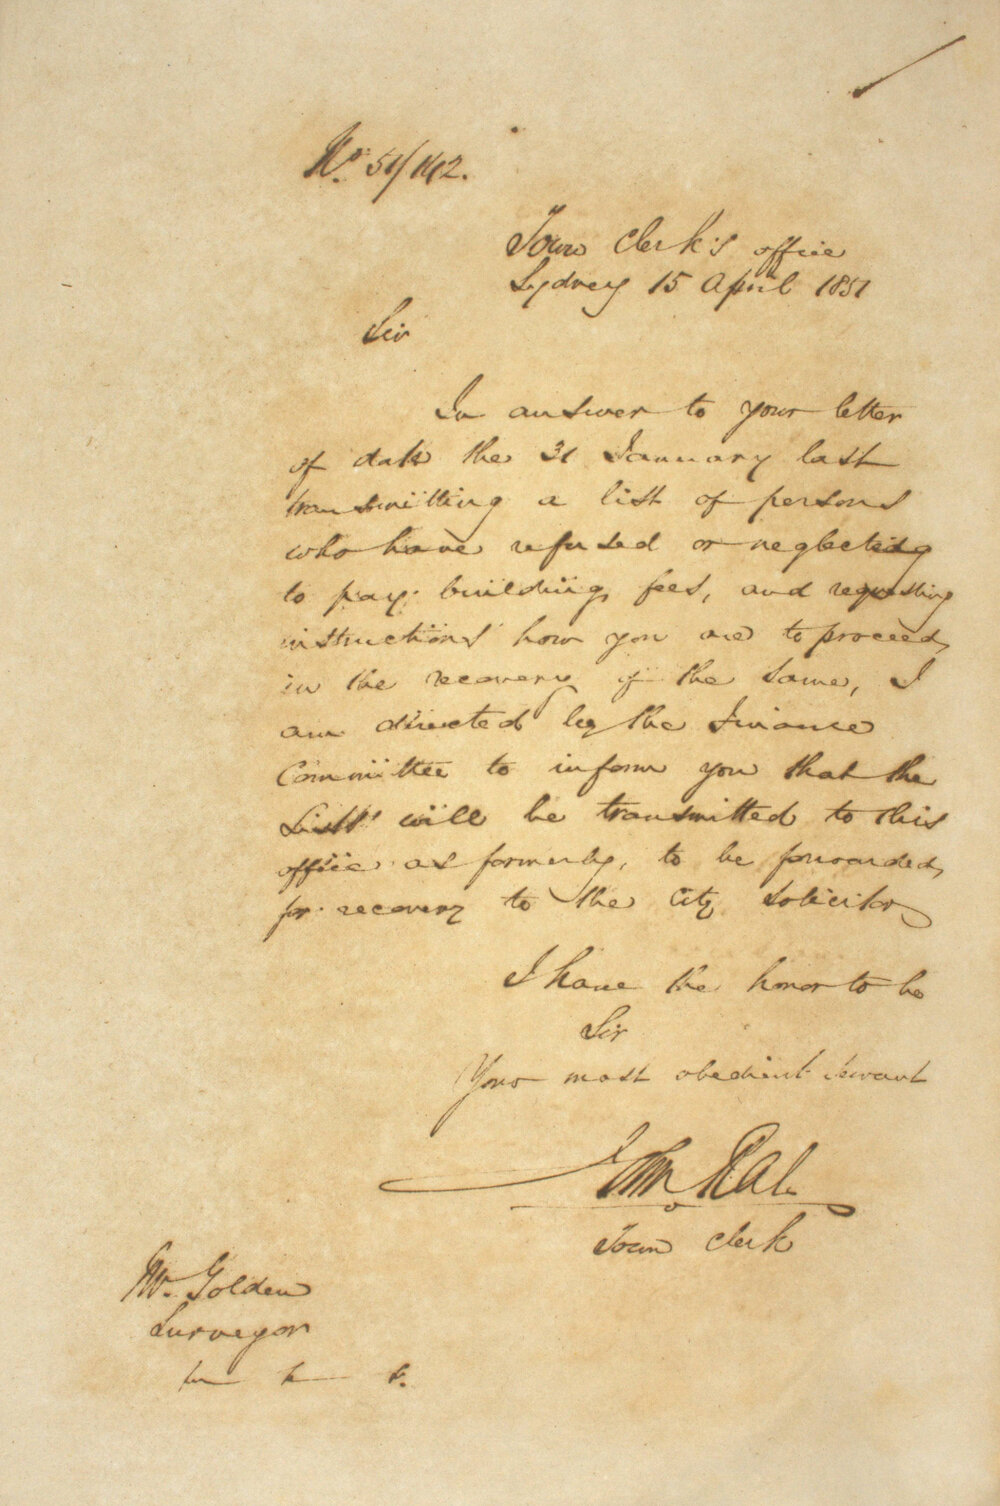 No. 51/142.
Town Clerk's office
Sydney 15 April 1851
Sir
In answer to your letter
of date the 31 January last
transmitting a list of persons
who have refused or neglecting
to pay building fees, and requesting
instructions how you are to proceed
in the recovery of the same, I
am directed by the Finance
Committee to inform you that the
Lists will be transmitted to this
office as formerly, to be forwarded,
for recovery to the City Solicitor
I have the honor to be
Sir
Your most obedient Servant
John
Town Clerk
Mr. Golden
Surveyor